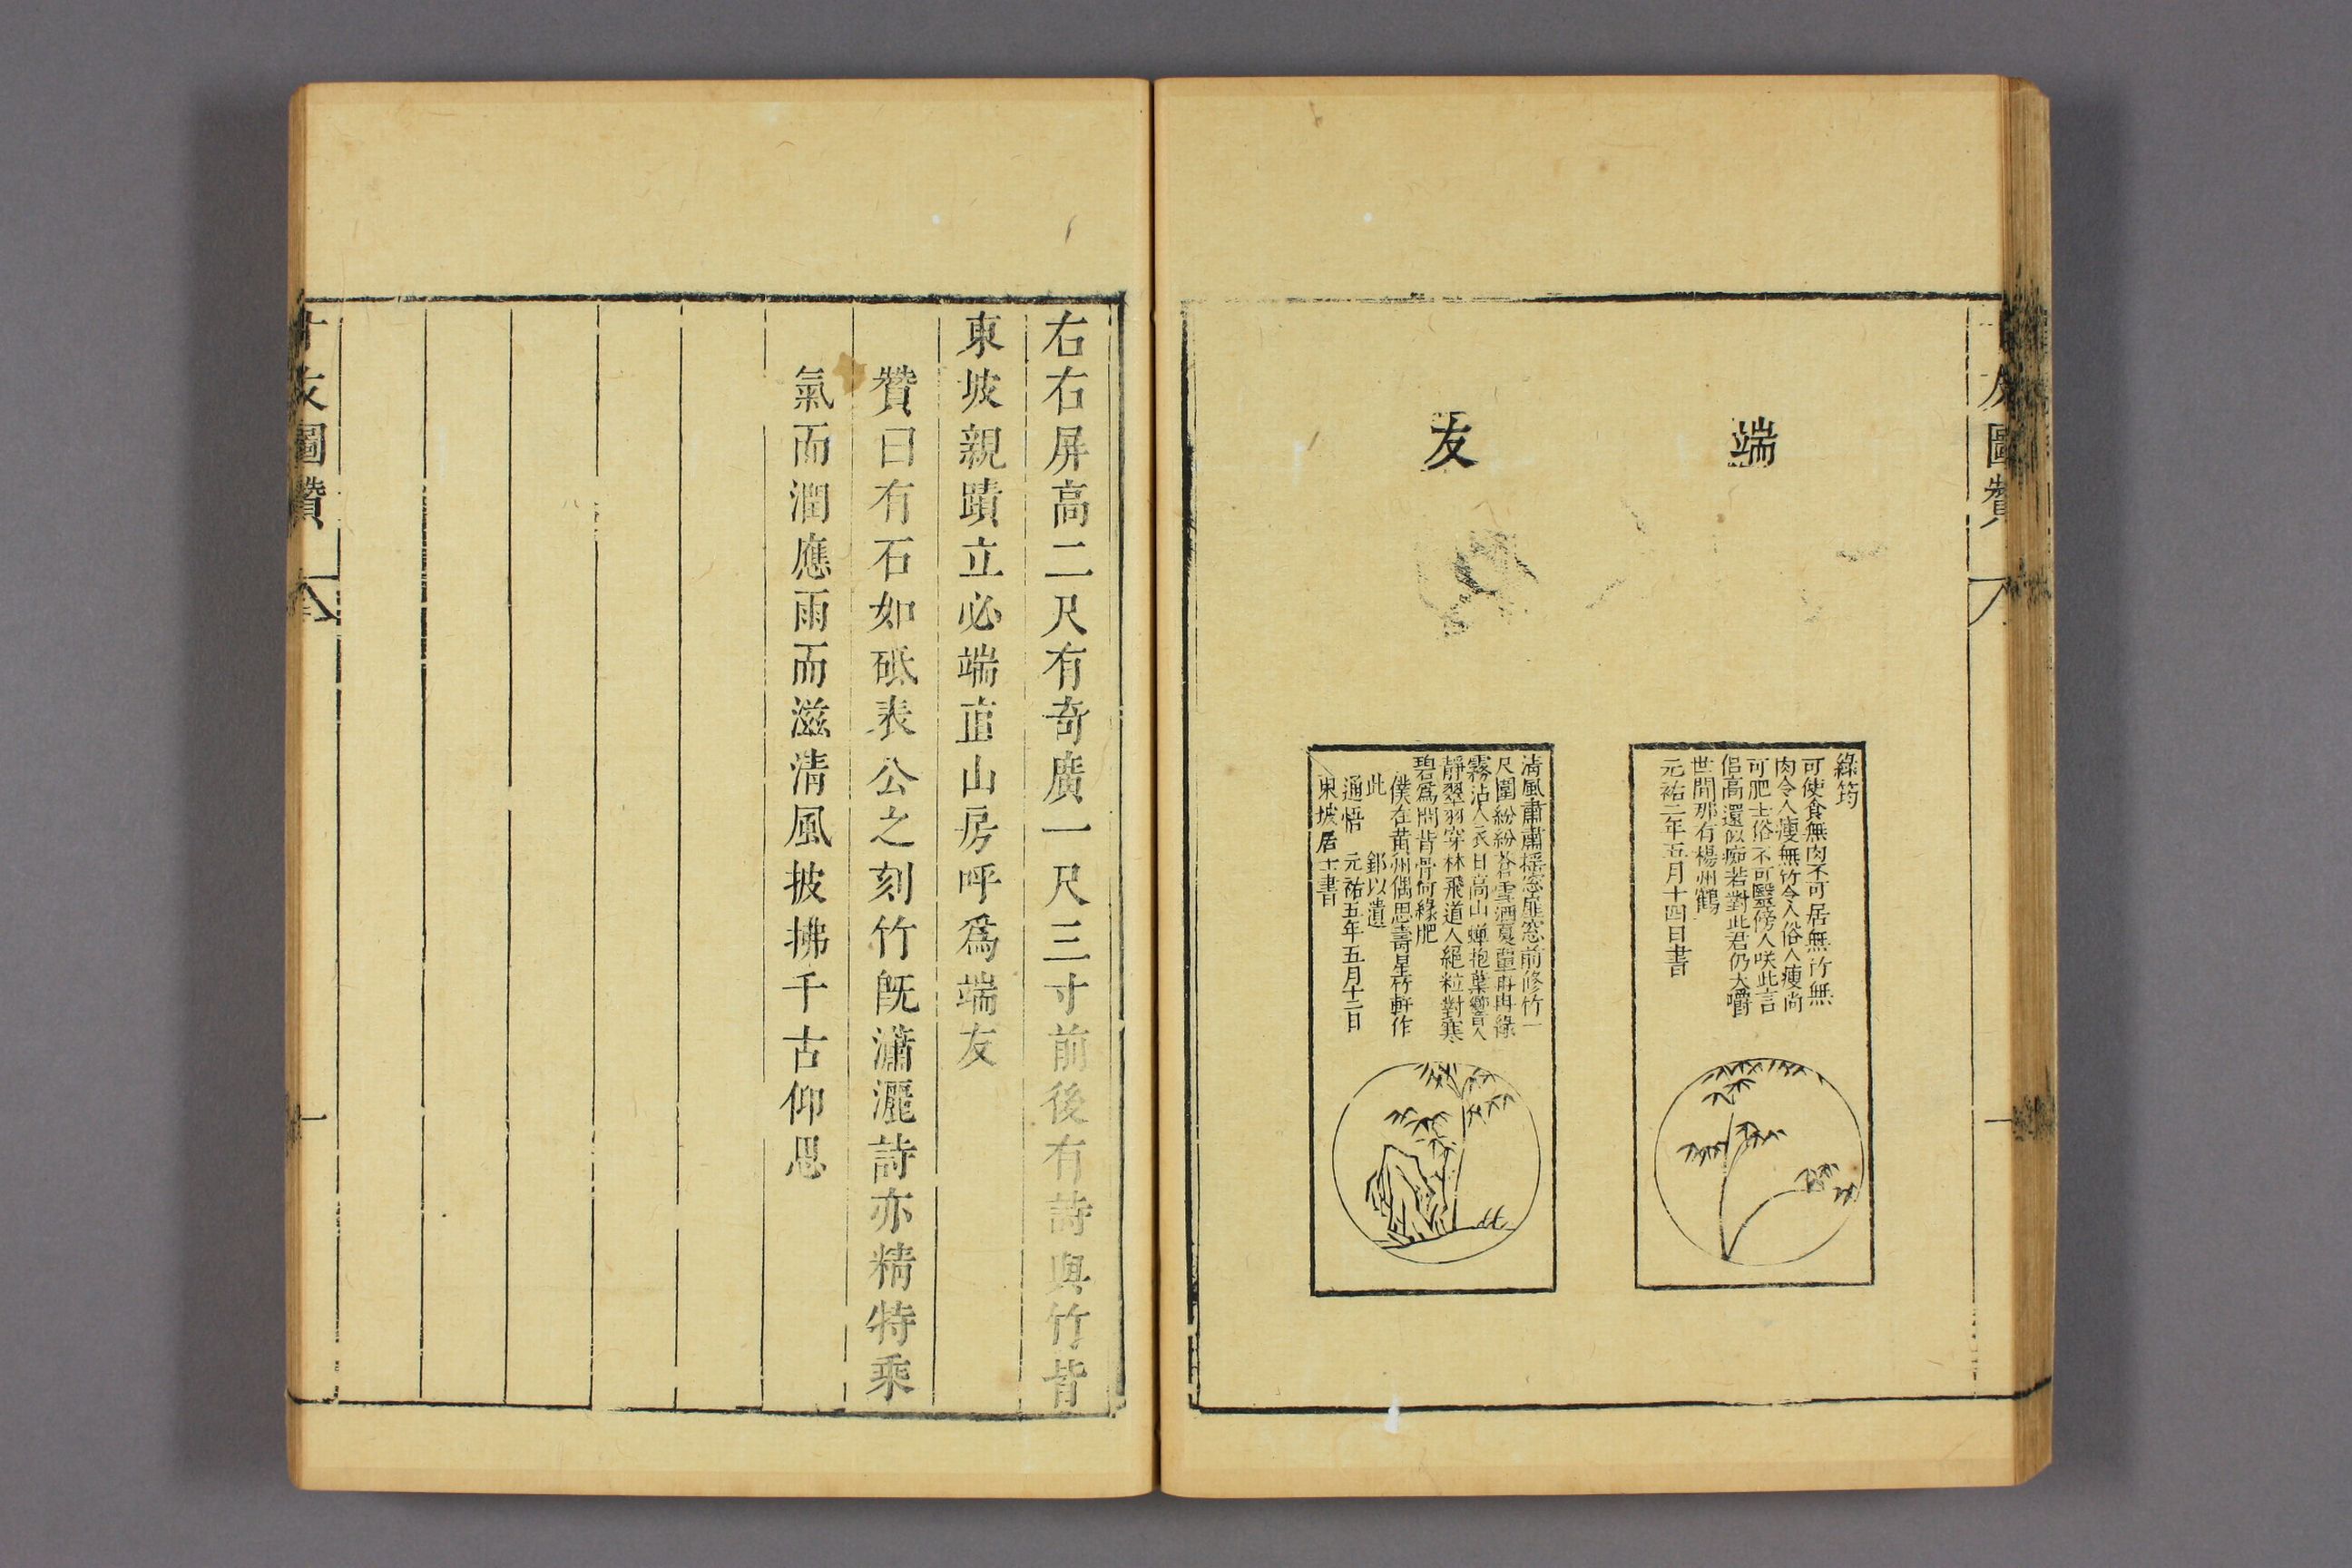 友圖贊
端
友
綠筠
可使食無肉不可居無竹無
肉令人瘦無竹令人俗人瘦尚
可肥士俗不可醫傍人咲此言
侣高還似痴若對此君仍大嚼
世間那有楊州鶴
元祐二年五月十四日書
清風肅肅搖窓扉窓前修竹一
尺圍紛紛蒼雪洒夏簟冉冉綠
霧沾人衣日高山蟬抱葉響人
靜翠羽穿林飛道人絕粒對寒
碧爲問昔骨何緣肥
僕在黃州偶思壽星竹軒作
此 郤以遺
通悟 元祐五年五月十二日
東坡居士書
右右屏高二尺有奇廣一尺三寸前後有詩與竹皆
東坡親蹟立必端直山房呼爲端友
贊曰有石如砥表公之刻竹既瀟灑詩亦精特乘
氣而潤應雨而滋清風披拂千古仰思
十友圖贊